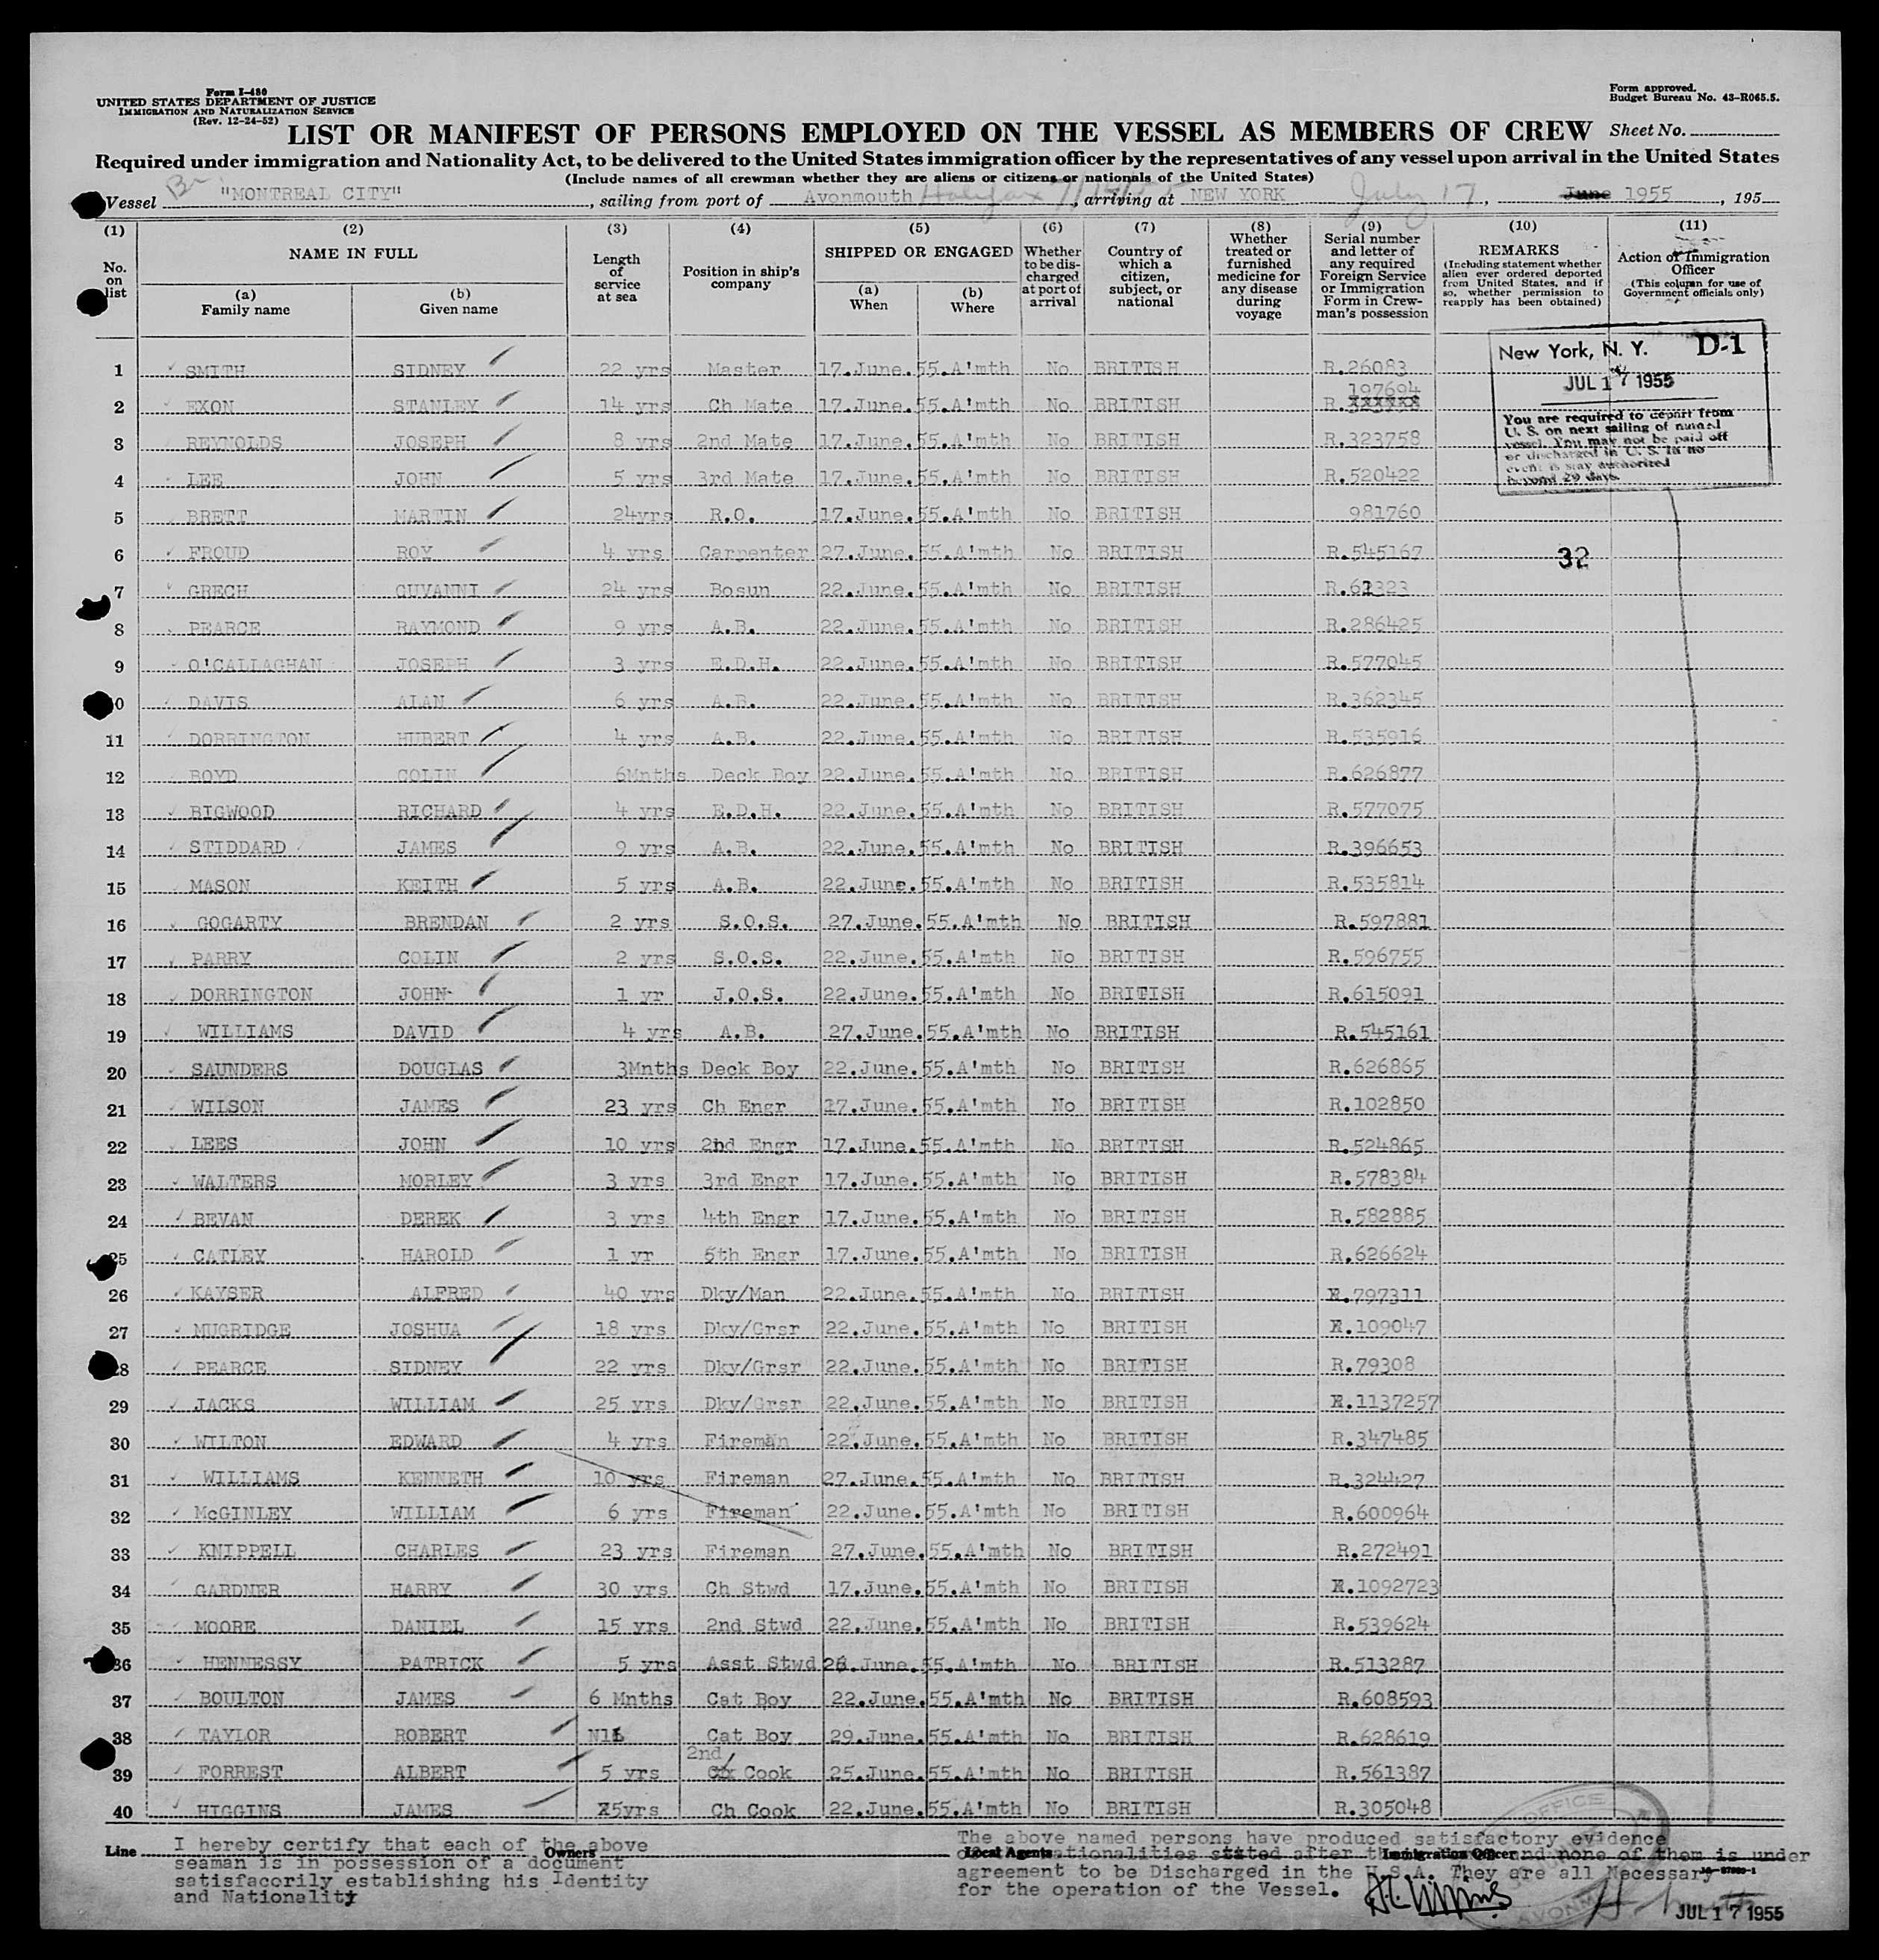 Form I-480
UNITED STATES DEPARTMENT OF JUSTICE
IMMIGRATION AND NATURALIZATION SERVICE
(Rev. 12-24-52)
Form approved.
Budget Bureau No. 43-R065.5.
LIST OR MANIFEST OF PERSONS EMPLOYED ON THE VESSEL AS MEMBERS OF CREW Sheet No.
Required under immigration and Nationality Act, to be delivered to the United States immigration officer by the representatives of any vessel upon arrival in the United States
(Include names of all crewman whether they are aliens or citizens or nationals of the United States)
Br. Vessel "MONTREAL CITY", sailing from port of Avonmouth Halifax, arriving at NEW YORK July 17, June 1955, 195
(1) No. on list
(2) NAME IN FULL
(a) Family name
(b) Given name
(3) Length of service at sea
(4) Position in ship's company
(5) SHIPPED OR ENGAGED
(a) When
(b) Where
(6) Whether to be discharged at port of arrival
(7) Country of which a citizen, subject, or national
(8) Whether treated or furnished medicine for any disease during voyage
(9) Serial number and letter of any required Foreign Service or Immigration Form in Crewman's possession
(10) REMARKS (Including statement whether alien ever ordered deported from United States, and if so, whether permission to reapply has been obtained)
(11) Action of Immigration Officer (This column for use of Government officials only)
New York, N. Y. D-1
JUL 17 1955
You are required to depart from
U. S. on next sailing of named
vessel. You may not be paid off
or discharged in U. S. In no
event is stay authorized
beyond 29 days.
32
1 SMITH SIDNEY 22 yrs Master 17.June.55.A'mth No BRITISH R.26083
2 EXON STANLEY 14 yrs Ch Mate 17.June.55.A'mth No BRITISH R. 197694
3 REYNOLDS JOSEPH 8 yrs 2nd Mate 17.June.55.A'mth No BRITISH R.323758
4 LEE JOHN 5 yrs 3rd Mate 17.June.55.A'mth No BRITISH R.520422
5 BRETT MARTIN 24yrs R.O. 17.June.55.A'mth No BRITISH 981760
6 FROUD ROY 4 yrs Carpenter 27.June.55.A'mth No BRITISH R.545167
7 GRECH GUVANNI 24 yrs Bosun 22.June.55.A'mth No BRITISH
8 PEARCE RAYMOND 9 yrs A.B. 22.June.55.A'mth No BRITISH R.286425
9 O'CALLAGHAN JOSEPH 3 yrs E.D.H. 22.June.55.A'mth No BRITISH R.577045
10 DAVIS ALAN 6 yrs A.B. 22.June.55.A'mth No BRITISH R.362345
11 DORRINGTON HUBERT 4 yrs A.B. 22.June.55.A'mth No BRITISH R.535916
12 BOYD COLIN 6Mnths Deck Boy 22.June.55.A'mth No BRITISH R.626877
13 BIGWOOD RICHARD 4 yrs E.D.H. 22.June.55.A'mth No BRITISH R.577075
14 STIDDARD JAMES 9 yrs A.B. 22.June.55.A'mth No BRITISH R.396653
15 MASON KEITH 5 yrs A.B. 22.June.55.A'mth No BRITISH R.535814
16 GOGARTY BRENDAN 2 yrs S.O.S. 27.June.55.A'mth No BRITISH R.597881
17 PARRY COLIN 2 yrs S.O.S. 22.June.55.A'mth No BRITISH R.596755
18 DORRINGTON JOHN 1 yr J.O.S. 22.June.55.A'mth No BRITISH R.615091
19 WILLIAMS DAVID 4 yrs A.B. 27.June.55.A'mth No BRITISH R.545161
20 SAUNDERS DOUGLAS 3Mnths Deck Boy 22.June.55.A'mth No BRITISH R.626865
21 WILSON JAMES 23 yrs Ch Engr 17.June.55.A'mth No BRITISH R.102850
22 LEES JOHN 10 yrs 2nd Engr 17.June.55.A'mth No BRITISH R.524865
23 WALTERS MORLEY 3 yrs 3rd Engr 17.June.55.A'mth No BRITISH R.578384
24 BEVAN DEREK 3 yrs 4th Engr 17.June.55.A'mth No BRITISH R.582885
25 CATLEY HAROLD 1 yr 5th Engr 17.June.55.A'mth No BRITISH R.626624
26 KAYSER ALFRED 40 yrs Dky/Man 22.June.55.A'mth No BRITISH R.797311
27 MUGRIDGE JOSHUA 18 yrs Dky/Grsr 22.June.55.A'mth No BRITISH R.109047
28 PEARCE SIDNEY 22 yrs Dky/Grsr 22.June.55.A'mth No BRITISH R.79308
29 JACKS WILLIAM 25 yrs Dky/Grsr 22.June.55.A'mth No BRITISH R.1137257
30 WILTON EDWARD 4 yrs Fireman 22.June.55.A'mth No BRITISH R.347485
31 WILLIAMS KENNETH 10 yrs Fireman 27.June.55.A'mth No BRITISH R.324427
32 McGINLEY WILLIAM 6 yrs Fireman 22.June.55.A'mth No BRITISH R.600964
33 KNIPPELL CHARLES 23 yrs Fireman 27.June.55.A'mth No BRITISH R.272491
34 GARDNER HARRY 30 yrs Ch Stwd 17.June.55.A'mth No BRITISH R.1092723
35 MOORE DANIEL 15 yrs 2nd Stwd 22.June.55.A'mth No BRITISH R.539624
36 HENNESSY PATRICK 5 yrs Asst Stwd June.55.A'mth No BRITISH R.513287
37 BOULTON JAMES 6 Mnths Cat Boy 22.June.55.A'mth No BRITISH R.608593
38 TAYLOR ROBERT Nil Cat Boy 29.June.55.A'mth No BRITISH R.628619
39 FORREST ALBERT 5 yrs 2nd Cook 25.June.55.A'mth No BRITISH R.561387
40 HIGGINS JAMES 5yrs Ch Cook 22.June.55.A'mth No BRITISH R.305048
Line Owners Local Agents Immigration Officer
I hereby certify that each of the above
seaman is in possession of a document
satisfacorily establishing his Identity
and Nationality
The above named persons have produced satisfactory evidence
nationalities stated after and none of them is under
agreement to be Discharged in the U.S.A. They are all Necessary
for the operation of the Vessel.
JUL 17 1955